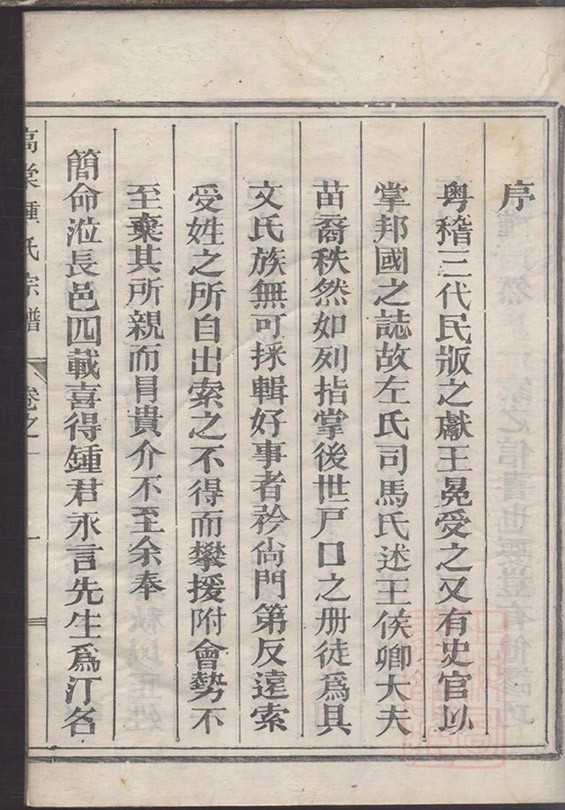 序
粵稽三代民版之獻王冕受之又有史官以
掌邦國之誌故左氏司馬氏述王侯卿大夫
苗裔秩然如列指掌後世戸口之册徒爲具
文氏族無可採輯好事者矜尙門第反遠索
受姓之所自出索之不得而攀援附會勢不
至棄其所親而冐貴介不至余奉
簡命涖長邑四載喜得鍾君永言先生爲汀名
高棠鍾氏宗譜 卷之一 一